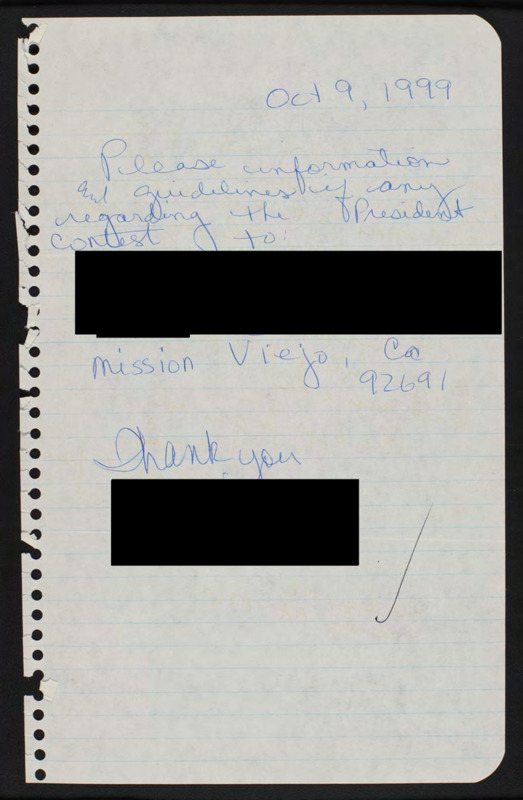 Oct 9, 1999
Please information
and guidelines if any
regarding the President
contest to:
Mission Viejo, Ca
92691
Thank you